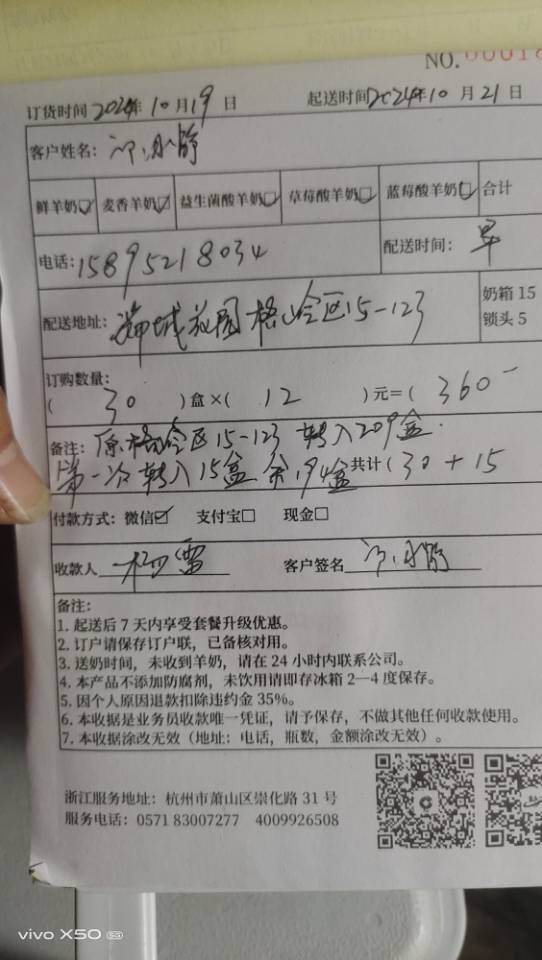 NO.00018
订货时间 2024年 10月 19日 起送时间 2024年 10月 21日
客户姓名：
鲜羊奶☑ 麦香羊奶☑ 益生菌酸羊奶 草莓酸羊奶 蓝莓酸羊奶 合计
电话：15895218034 配送时间：早
配送地址： 城花园 格 区15-123 奶箱 15
锁头 5
订购数量：
( 30 ) 盒 × ( 12 ) 元 = ( 360
备注：原格 区 15-123 转入209盒.
第一次转入15盒 余194盒 共计 ( 30 + 15
付款方式：微信☑ 支付宝□ 现金□
收款人 杨雷 客户签名
备注：
1. 起送后 7 天内享受套餐升级优惠。
2. 订户请保存订户联，已备核对用。
3. 送奶时间，未收到羊奶，请在 24 小时内联系公司。
4. 本产品不添加防腐剂，未饮用请即存冰箱 2—4 度保存。
5. 因个人原因退款扣除违约金 35%。
6. 本收据是业务员收款唯一凭证，请予保存，不做其他任何收款使用。
7. 本收据涂改无效（地址：电话，瓶数，金额涂改无效）。
浙江服务地址：杭州市萧山区崇化路 31 号
服务电话：0571 83007277 4009926508
vivo X50 5G